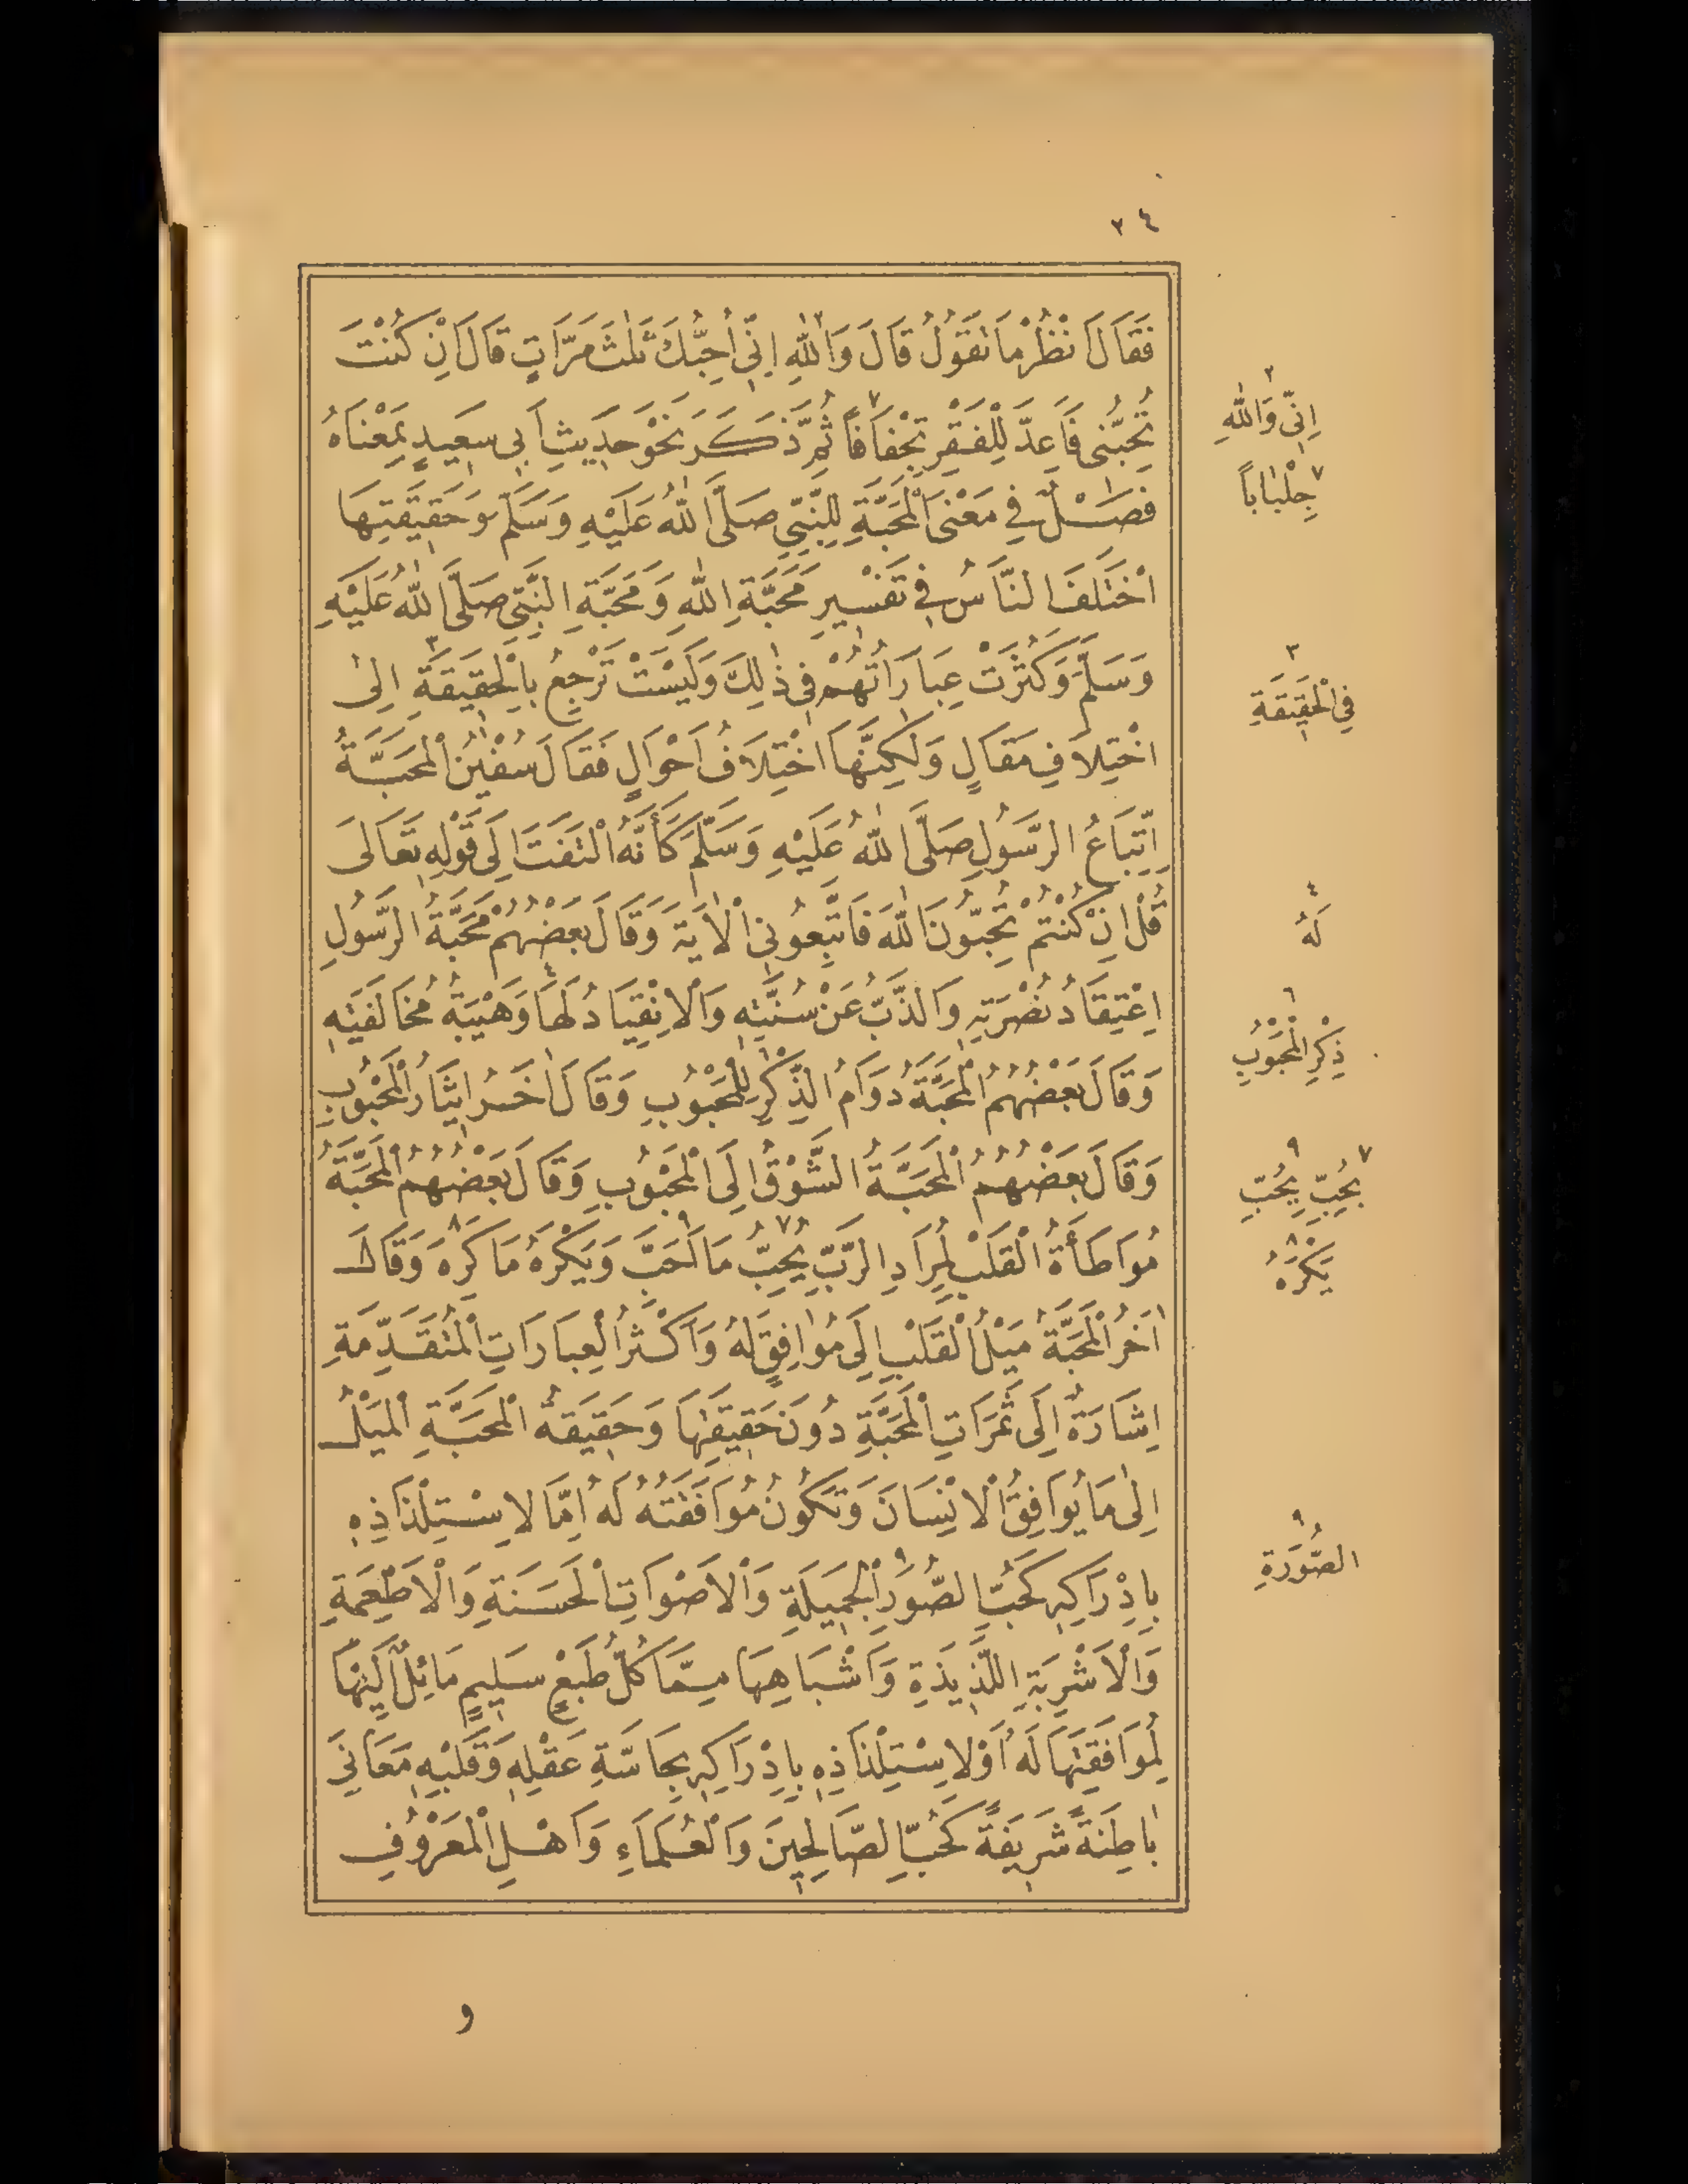 ٢٤
فَقَالَ انْظُرْ مَا تَقُولُ قَالَ وَاللّٰهِ اِنّٖى اُحِبُّكَ ثَلٰثَ مَرَّاتٍ قَالَ اِنْ كُنْتَ
تُحِبُّنٖى فَاَعِدَّ لِلْفَقْرِ تِجْفَافًا ثُمَّ ذَكَرَ نَحْوَ حَدٖيثِ اَبٖى سَعٖيدٍ بِمَعْنَاهُ
فَصْلٌ فٖى مَعْنَى الْمَحَبَّةِ لِلنَّبِيِّ صَلَّى اللّٰهُ عَلَيْهِ وَسَلَّمَ وَحَقٖيقَتِهَا
اخْتَلَفَ النَّاسُ فٖى تَفْسٖيرِ مَحَبَّةِ اللّٰهِ وَمَحَبَّةِ النَّبِيِّ صَلَّى اللّٰهُ عَلَيْهِ
وَسَلَّمَ وَكَثُرَتْ عِبَارَاتُهُمْ فٖى ذٰلِكَ وَلَيْسَتْ تَرْجِعُ بِالْحَقٖيقَةِ ٣ اِلٰى
اخْتِلَافِ مَقَالٍ وَلٰكِنَّهَا اخْتِلَافُ اَحْوَالٍ فَقَالَ سُفْيٰنُ الْمَحَبَّةُ
اِتِّبَاعُ الرَّسُولِ صَلَّى اللّٰهُ عَلَيْهِ وَسَلَّمَ كَأَنَّهُ الْتَفَتَ اِلَى قَوْلِهٖ تَعَالَى
قُلْ اِنْ كُنْتُمْ تُحِبُّونَ اللّٰهَ فَاتَّبِعُونٖى الْاٰيَةَ وَقَالَ بَعْضُهُمْ مَحَبَّةُ الرَّسُولِ
اِعْتِقَادُ نُصْرَتِهٖ وَالذَّبُّ عَنْ سُنَّتِهٖ وَالْاِنْقِيَادُ لَهَا ٤ وَهَيْبَةُ مُخَالَفَتِهٖ
وَقَالَ بَعْضُهُمُ الْمَحَبَّةُ دَوَامُ الذِّكْرِ لِلْمَحْبُوبِ ٦ وَقَالَ اٰخَرُ اٖيثَارُ الْمَحْبُوبِ
وَقَالَ بَعْضُهُمُ الْمَحَبَّةُ الشَّوْقُ اِلَى الْمَحْبُوبِ وَقَالَ بَعْضُهُمُ الْمَحَبَّةُ
مُوَاطَأَةُ الْقَلْبِ لِمُرَادِ الرَّبِّ يُحِبُّ ٧ مَا اَحَبَّ ٩ وَيَكْرَهُ مَا كَرِهَ ٨ وَقَالَ
اٰخَرُ الْمَحَبَّةُ مَيْلُ الْقَلْبِ اِلَى مُوَافِقٍ لَهُ وَاَكْثَرُ الْعِبَارَاتِ الْمُتَقَدِّمَةِ
اِشَارَةٌ اِلَى ثَمَرَاتِ الْمَحَبَّةِ دُونَ حَقٖيقَتِهَا وَحَقٖيقَةُ الْمَحَبَّةِ الْمَيْلُ
اِلٰى مَا يُوَافِقُ الْاِنْسَانَ وَتَكُونُ مُوَافَقَتُهُ لَهُ اِمَّا لِاسْتِلْذَاذِهٖ
بِاِدْرَاكِهٖ كَحُبِّ الصُّوَرِ ٩ الْجَمٖيلَةِ وَالْاَصْوَاتِ الْحَسَنَةِ وَالْاَطْعِمَةِ
وَالْاَشْرِبَةِ اللَّذٖيذَةِ وَاَشْبَاهِهَا مِمَّا كُلُّ طَبْعٍ سَلٖيمٍ مَائِلٌ اِلَيْهَا
لِمُوَافَقَتِهَا لَهُ اَوْ لِاسْتِلْذَاذِهٖ بِاِدْرَاكِهٖ بِحَاسَّةِ عَقْلِهٖ وَقَلْبِهٖ مَعَانِيَ
بَاطِنَةً شَرٖيفَةً كَحُبِّ الصَّالِحٖينَ وَالْعُلَمَاءِ وَاَهْلِ الْمَعْرُوفِ
٢
اِنّٖى وَاللّٰهِ
٧
جِلْبَابًا
٣
فِى الْحَقٖيقَةِ
٤
لَهُ
٦
ذِكْرِ الْمَحْبُوبِ
٧ ٩
بِحُبِّ يُحِبِّ
٨
يَكْرَهُ
٩
الصُّورَةِ
و